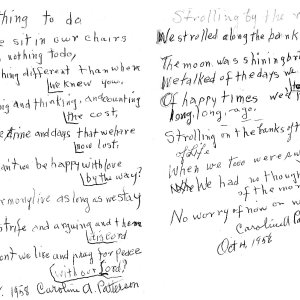 thing to do
e sit in our chairs
nothing to do,
hing different than when
we knew you.
ng and thinking, and counting
the cost,
time and days that we have
now lost,
an't we be happy with love
by the way?
rmony live as long as we stay
strife and arguing and them
discord
n't we like and pray for peace
with our Lord?
1958 Caroline A. Patterson
Strolling by the
We strolled along the bank
The moon was shining bri
We talked of the days we
Of happy times were
long, long, ago.
Strolling on the banks of t
of Life
When we two were sw
We had no though
of the mo
No worry of now or w
Caroline A Patt
Oct 14, 1956